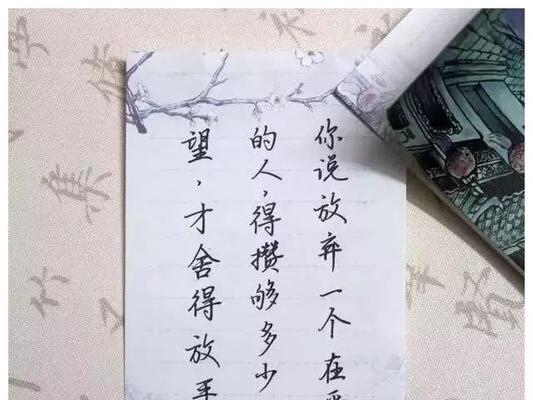 你说放弃一个在
的人,得攒够多少
望,才舍得放手